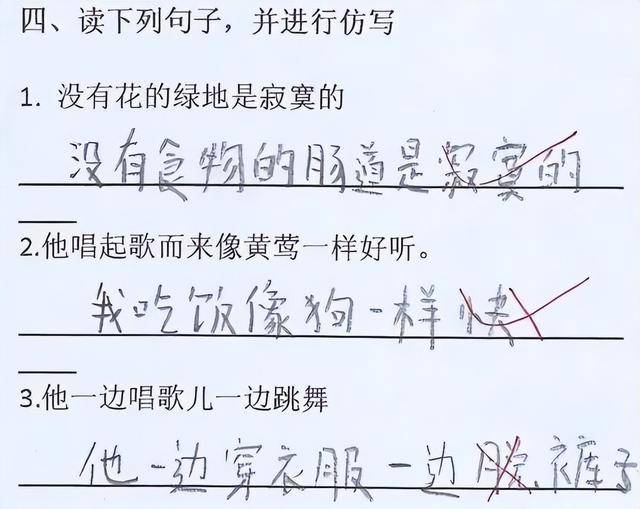 四、读下列句子，并进行仿写
1. 没有花的绿地是寂寞的
没有食物的肠道是寂寞的
2.他唱起歌而来像黄莺一样好听。
我吃饭像狗一样快
3.他一边唱歌儿一边跳舞
他一边穿衣服一边脱裤子